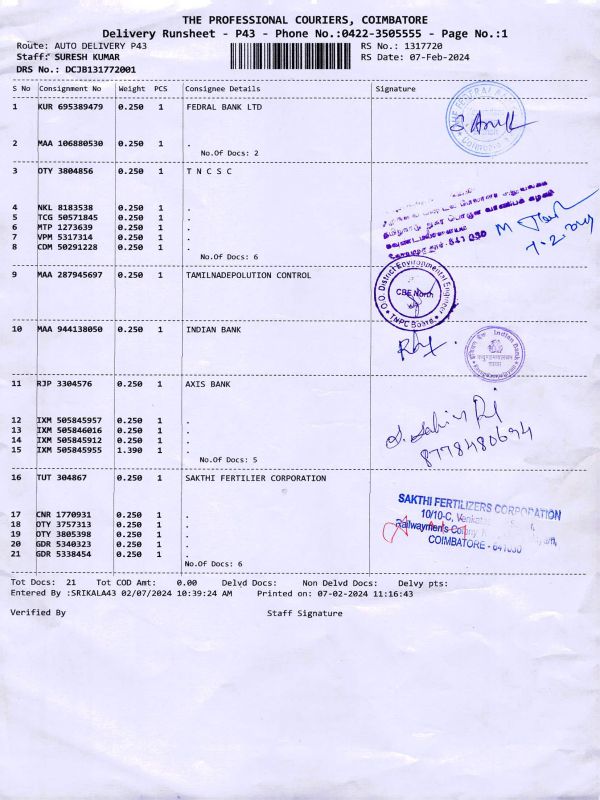 THE PROFESSIONAL COURIERS, COIMBATORE
Delivery Runsheet - P43 - Phone No.:0422-3505555 - Page No.:1
Route: AUTO DELIVERY P43 RS No.: 1317720
Staff: SURESH KUMAR RS Date: 07-Feb-2024
DRS No.: DCJB131772001
S No Consignment No Weight PCS Consignee Details Signature
1 KUR 695389479 0.250 1 FEDRAL BANK LTD
2 MAA 106880530 0.250 1 .
No.Of Docs: 2
3 OTY 3804856 0.250 1 T N C S C
4 NKL 8183538 0.250 1 .
5 TCG 50571845 0.250 1 .
6 MTP 1273639 0.250 1 .
7 VPM 5317314 0.250 1 .
8 CDM 50291228 0.250 1 .
No.Of Docs: 6
9 MAA 287945697 0.250 1 TAMILNADEPOLUTION CONTROL
O/O. District Environmental Engineer
CBE North
TNPC Board
10 MAA 944138050 0.250 1 INDIAN BANK
Indian Bank
11 RJP 3304576 0.250 1 AXIS BANK
12 IXM 505845957 0.250 1 .
13 IXM 505846016 0.250 1 .
14 IXM 505845912 0.250 1 .
15 IXM 505845955 1.390 1 .
No.Of Docs: 5
8778480694
16 TUT 304867 0.250 1 SAKTHI FERTILIER CORPORATION
SAKTHI FERTILIZERS CORPORATION
10/10-C,
Railwaymen's Colony
COIMBATORE - 641030
17 CNR 1770931 0.250 1 .
18 OTY 3757313 0.250 1 .
19 OTY 3805398 0.250 1 .
20 GDR 5340323 0.250 1 .
21 GDR 5338454 0.250 1 .
No.Of Docs: 6
Tot Docs: 21 Tot COD Amt: 0.00 Delvd Docs: Non Delvd Docs: Delvy pts:
Entered By :SRIKALA43 02/07/2024 10:39:24 AM Printed on: 07-02-2024 11:16:43
Verified By Staff Signature